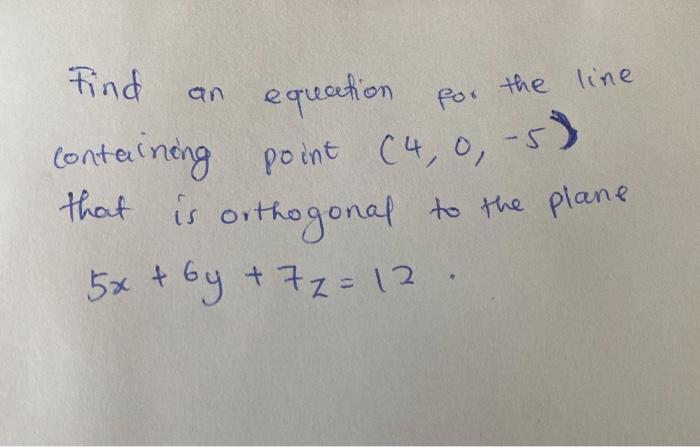 Find an equation for the line
containing point (4, 0, -5)
that is orthogonal to the plane
5x + 6y + 7z = 12.